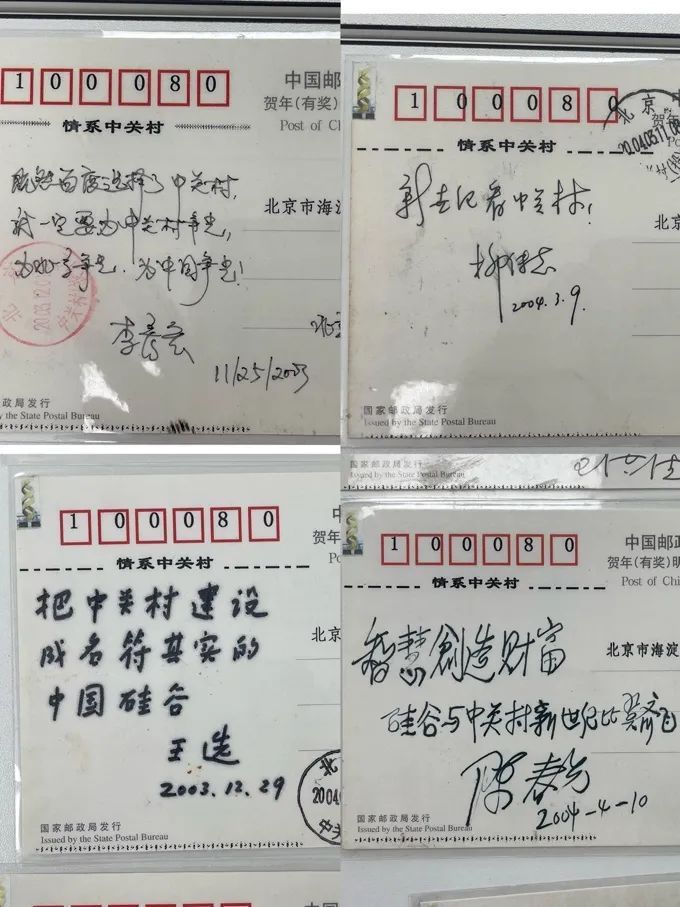 100080
中国邮
贺年(有奖)
Post of Ch
情系中关村
既然百度选择了中关村,
就一定要为中关村争光,
为北京争光,为中国争光!
北京市海淀
李彦宏
11/25/2003
国家邮政局发行
by the State Postal Bureau
100080
情系中关村
新世纪看中关村!
北京
柳传志
2004.3.9.
国家邮政局发行
Issued by the State Postal Bureau
100080
贺年(
Pos
情系中关村
把中关村建设
成名符其实的
中国硅谷
北京
王选
2003.12.29
国家邮政局发行
Issued by the State Postal Bureau
国家邮政局发行
Issued by the State Postal Bureau
100080
中国邮政
贺年(有奖)明
Post of Chi
情系中关村
智慧創造财富
北京市海淀
硅谷与中关村新世纪比翼齐飞
陈春先
2004-4-10
国家邮政局发行
Issued by the State Postal Bureau